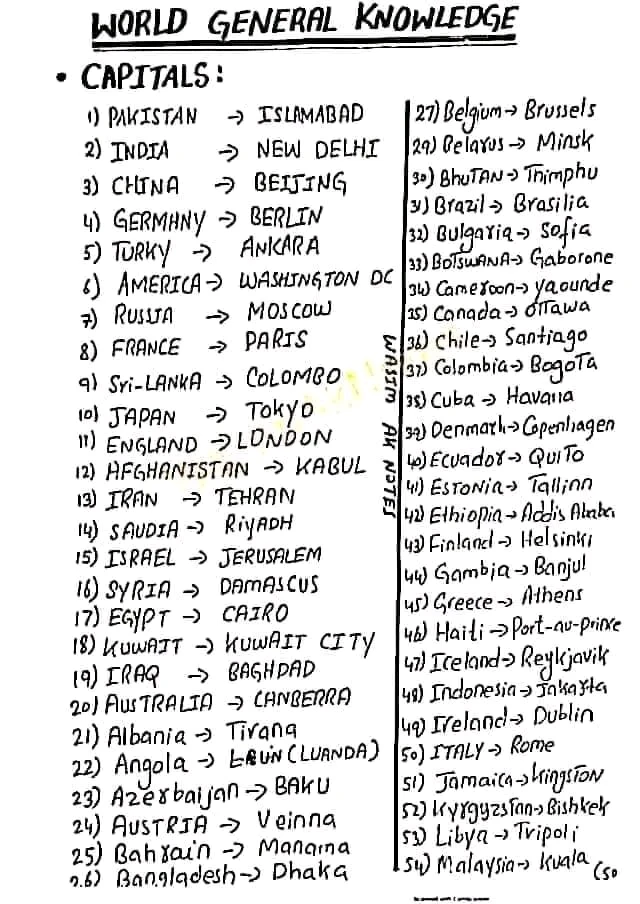 WORLD GENERAL KNOWLEDGE
• CAPITALS:
1) PAKISTAN → ISLAMABAD
2) INDIA → NEW DELHI
3) CHINA → BEIJING
4) GERMANY → BERLIN
5) TURKY → ANKARA
6) AMERICA → WASHINGTON DC
7) RUSSIA → MOSCOW
8) FRANCE → PARIS
9) Sri-LANKA → COLOMBO
10) JAPAN → Tokyo
11) ENGLAND → LONDON
12) AFGHANISTAN → KABUL
13) IRAN → TEHRAN
14) SAUDIA → RiYADH
15) ISRAEL → JERUSALEM
16) SYRIA → DAMASCUS
17) EGYPT → CAIRO
18) KUWAIT → KUWAIT CITY
19) IRAQ → BAGHDAD
20) AUSTRALIA → CANBERRA
21) Albania → Tirana
22) Angola → (LUANDA)
23) Azerbaijan → BAKU
24) AUSTRIA → Veinna
25) Bahrain → Manama
26) Bangladesh → Dhaka
WASIM AK NOTES
27) Belgium → Brussels
29) Belarus → Minsk
30) BhuTAN → Thimphu
31) Brazil → Brasilia
32) Bulgaria → Sofia
33) BOTSWANA → Gaborone
34) Cameroon → yaounde
35) Canada → OTTawa
36) Chile → Santiago
37) Colombia → BogoTa
38) Cuba → Havana
39) Denmark → Copenhagen
40) Ecuador → QuiTo
41) ESTonia → Tallinn
42) Ethiopia → Addis Ababa
43) Finland → Helsinki
44) Gambia → Banjul
45) Greece → Athens
46) Haiti → Port-au-prince
47) Iceland → Reykjavik
48) Indonesia → Jakarta
49) Ireland → Dublin
50) ITALY → Rome
51) Jamaica → KingsTON
52) KyrgyzsTan → Bishkek
53) Libya → Tripoli
54) Malaysia → Kuala